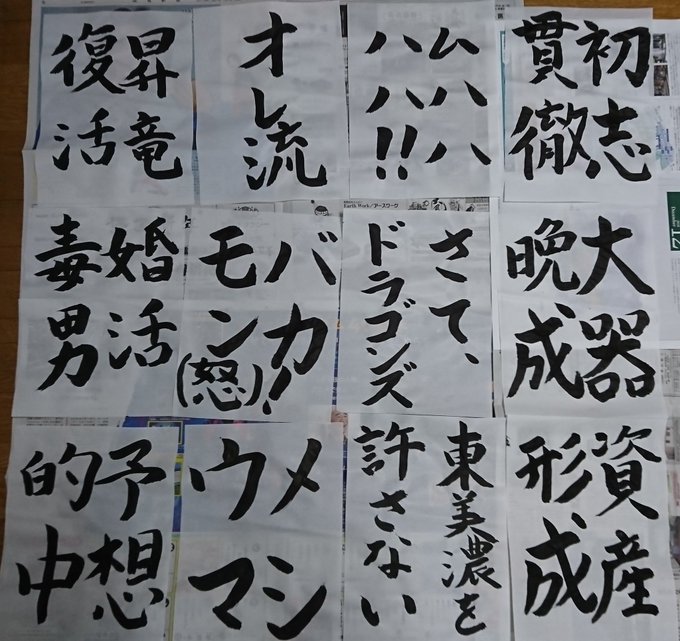 初志
貫徹
ムハハ
ハハ!!
オレ流
昇竜
復活
大器
晩成
さて、
ドラゴンズ
バカ!
モン(怒)
婚活
毒男
資産
形成
東美濃を
許さない
メシ
ウマ
予想
的中
Earth Work/アースワーク